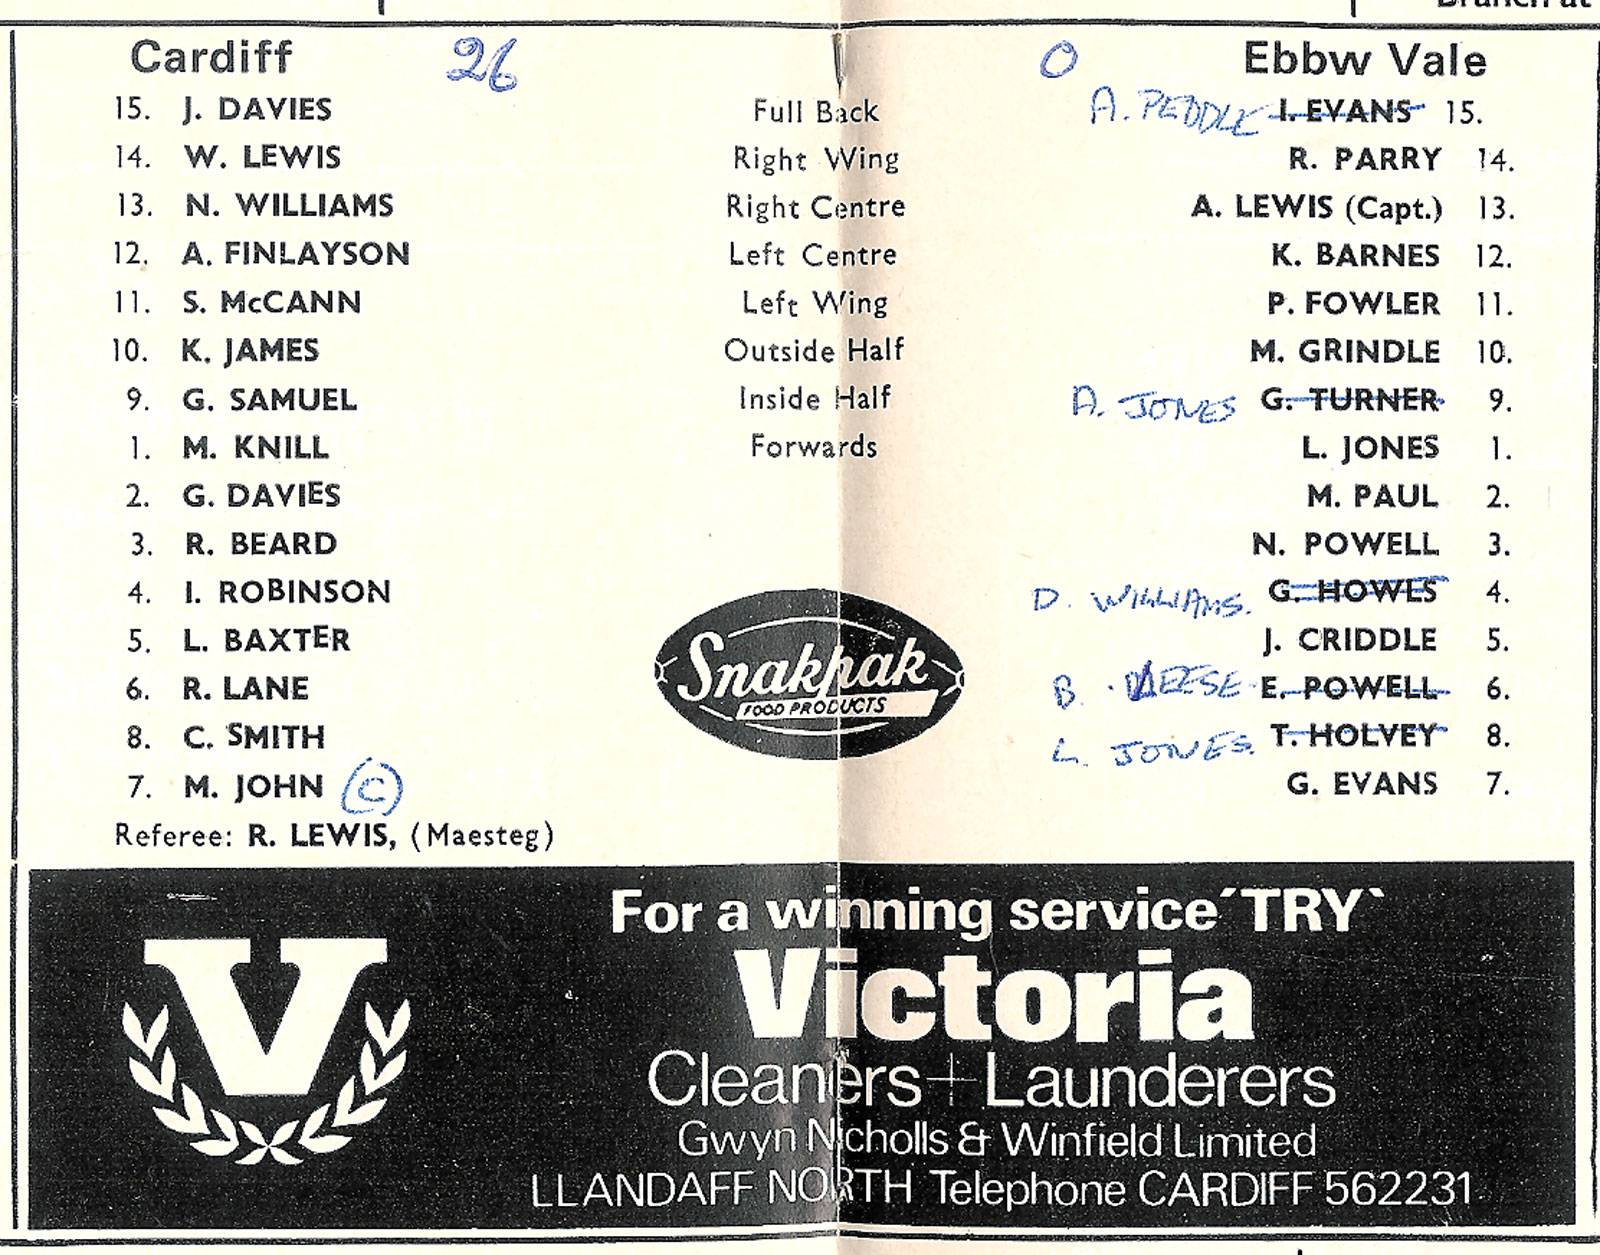 Cardiff 26 0 Ebbw Vale
15. J. DAVIES Full Back A. PEDDLE I. EVANS 15.
14. W. LEWIS Right Wing R. PARRY 14.
13. N. WILLIAMS Right Centre A. LEWIS (Capt.) 13.
12. A. FINLAYSON Left Centre K. BARNES 12.
11. S. McCANN Left Wing P. FOWLER 11.
10. K. JAMES Outside Half M. GRINDLE 10.
9. G. SAMUEL Inside Half A. JONES G. TURNER 9.
1. M. KNILL Forwards L. JONES 1.
2. G. DAVIES M. PAUL 2.
3. R. BEARD N. POWELL 3.
4. I. ROBINSON D. WILLIAMS. G. HOWLS 4.
5. L. BAXTER J. CRIDDLE 5.
6. R. LANE B. E. POWELL 6.
8. C. SMITH L. JONES. T. HOLVEY 8.
7. M. JOHN C G. EVANS 7.
Snakpak
FOOD PRODUCTS
Referee: R. LEWIS, (Maesteg)
V
For a winning service ´TRY`
Victoria
Cleaners + Launderers
Gwyn Nicholls & Winfield Limited
LLANDAFF NORTH Telephone CARDIFF 562231